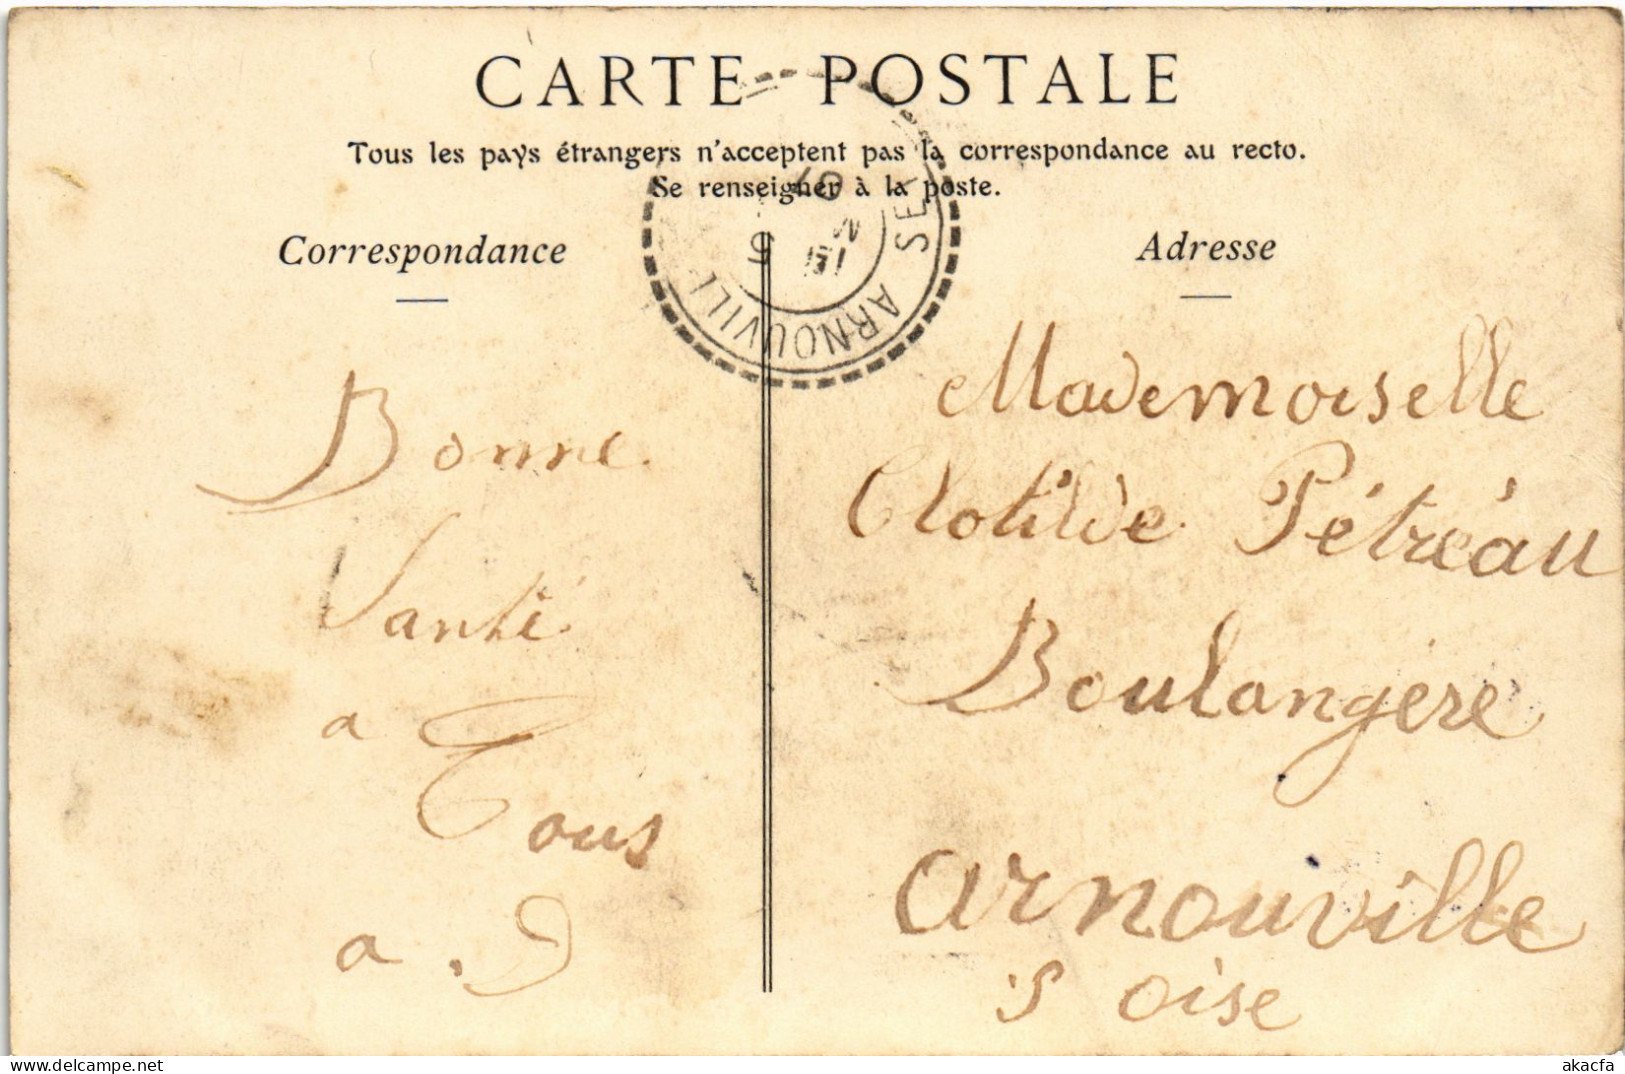 CARTE POSTALE
Tous les pays étrangers n'acceptent pas la correspondance au recto.
Se renseigner à la poste.
Correspondance
Bonne
Santé
a Tous
a . D
Adresse
Mademoiselle
Clotilde Pétréau
Boulangère
Arnouville
S Oise
ARNOUVILL